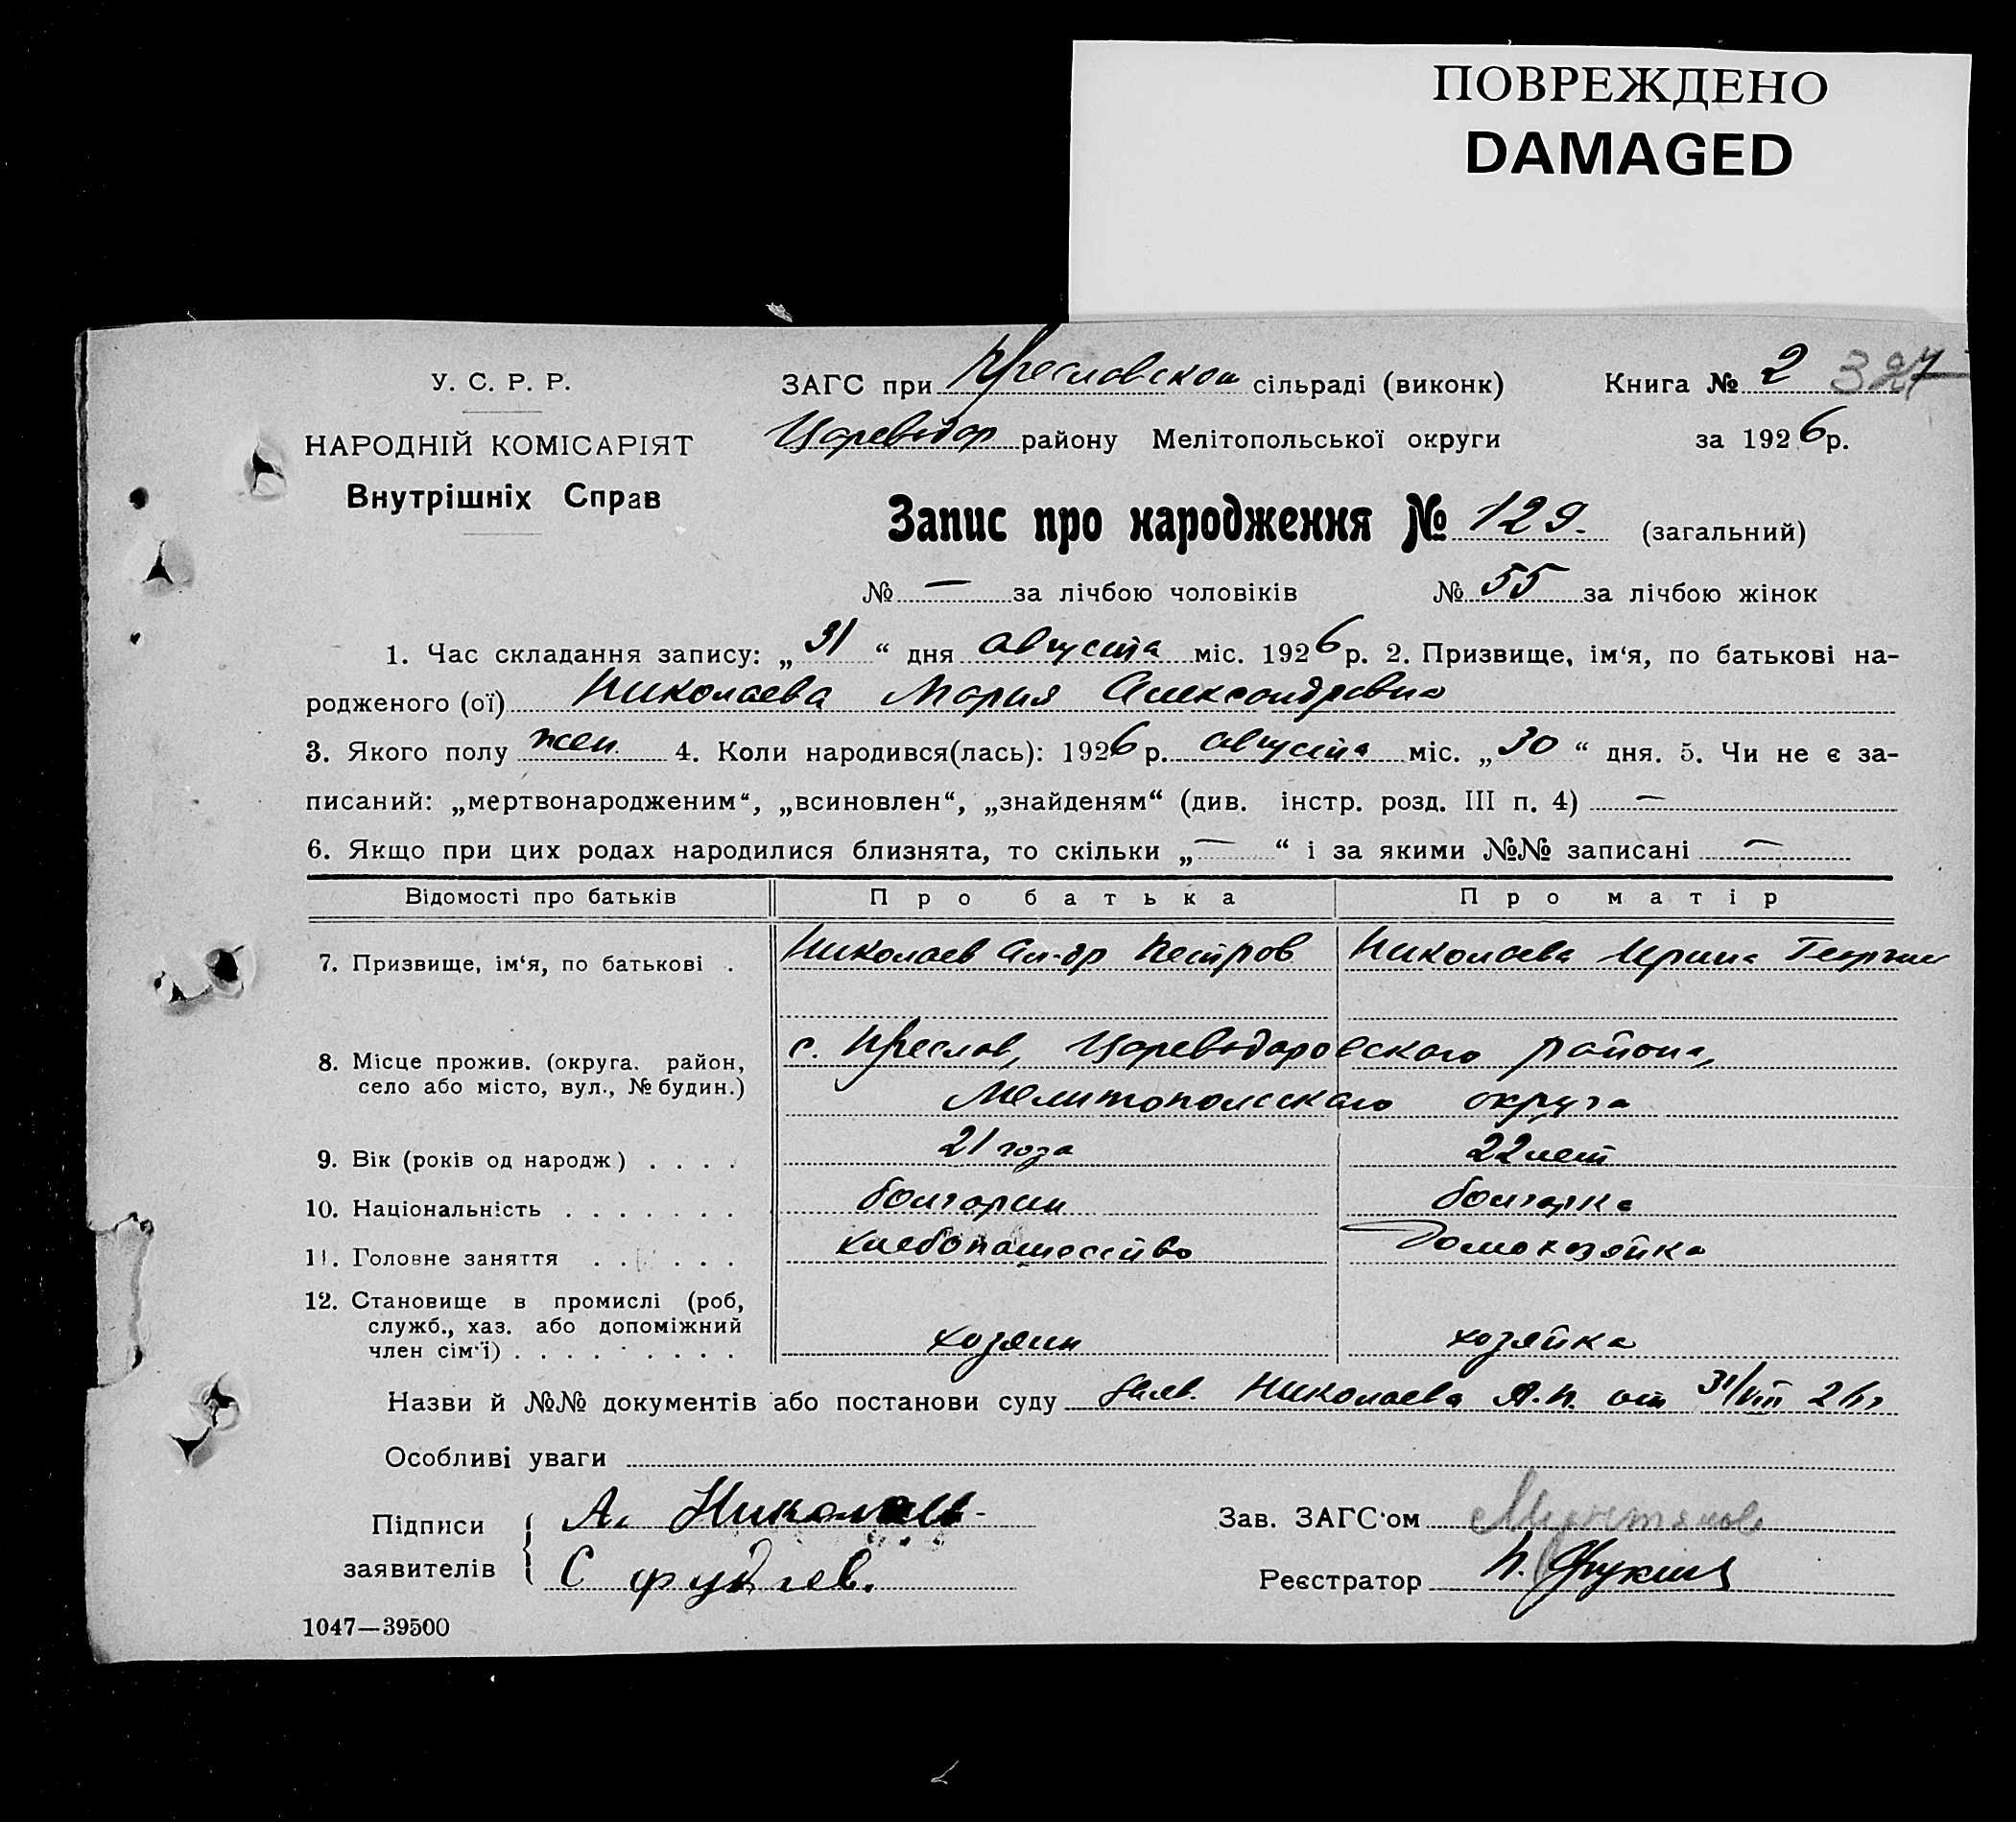 ПОВРЕЖДЕНО
DAMAGED
У. С. Р. Р.
НАРОДНІЙ КОМІСАРІЯТ
Внутрішніх Справ
ЗАГС при Преславской сільраді (виконк) Книга № 2 327
Цареводар району Мелітопольської округи за 1926 р.
Запис про народження № 129. (загальний)
№ — за лічбою чоловіків № 55 за лічбою жінок
1. Час складання запису: „31“ дня августа міс. 1926 р. 2. Призвище, ім‘я, по батькові на-
родженого (ої) Николаева Мария Александровна
3. Якого полу жен. 4. Коли народився(лась): 1926 р. августа міс. „30“ дня. 5. Чи не є за-
писаний: „мертвонародженим“, „всиновлен“, „знайденям“ (див. інстр. розд. III п. 4) —
6. Якщо при цих родах народилися близнята, то скільки „—“ і за якими №№ записані —
Відомості про батьків Про батька Про матір
7. Призвище, ім‘я, по батькові . Николаев Ал-др Петров Николаева Ирина Георгиев
8. Місце прожив. (округа. район,
село або місто, вул., № будин.)
с. Преслав, Цареводаровского района,
Мелитопольского округа
9. Вік (років од народж) . . . . 21 года 22 лет
10. Національність . . . . . . . болгарин болгарка
11. Головне заняття . . . . . . хлебопашество Домохозяйка
12. Становище в промислі (роб,
служб., хаз. або допоміжний
член сім‘ї) . . . . . . . . . хозяин хозяйка
Назви й №№ документів або постанови суду Заяв. Николаева А.П. от 31/VIII 26 г
Особливі уваги
Підписи А. Николаев Зав. ЗАГС‘ом
заявителів С Реєстратор П.
1047—39500